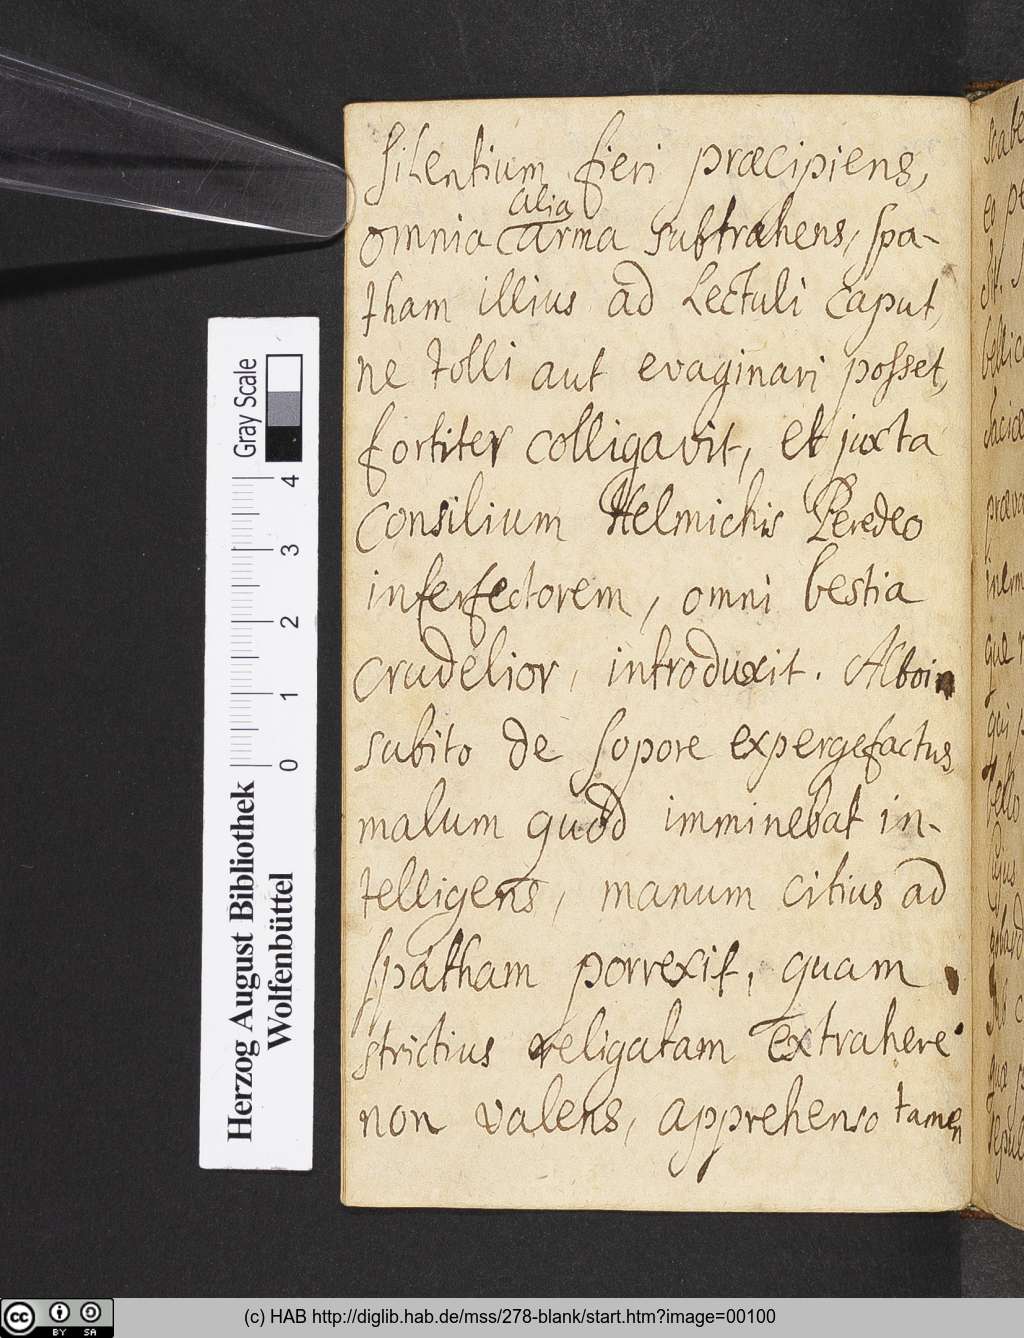 silentium fieri præcipiens,
alia
omnia arma subtrahens, spa-
tham illius ad Lectuli caput,
ne tolli aut evaginari posset,
fortiter colligavit, et juxta
consilium Helmichis Peredeo
interfectorem, omni bestia
crudelior, introduxit. Alboin
subito de sopore expergefactus
malum quod imminebat in-
telligens, manum citius ad
spatham porrexit, quam
strictius religatam extrahere
non valens, apprehenso tamen
Herzog August Bibliothek
Wolfenbüttel
0 1 2 3 4
Gray Scale
cc BY SA
(c) HAB http://diglib.hab.de/mss/278-blank/start.htm?image=00100